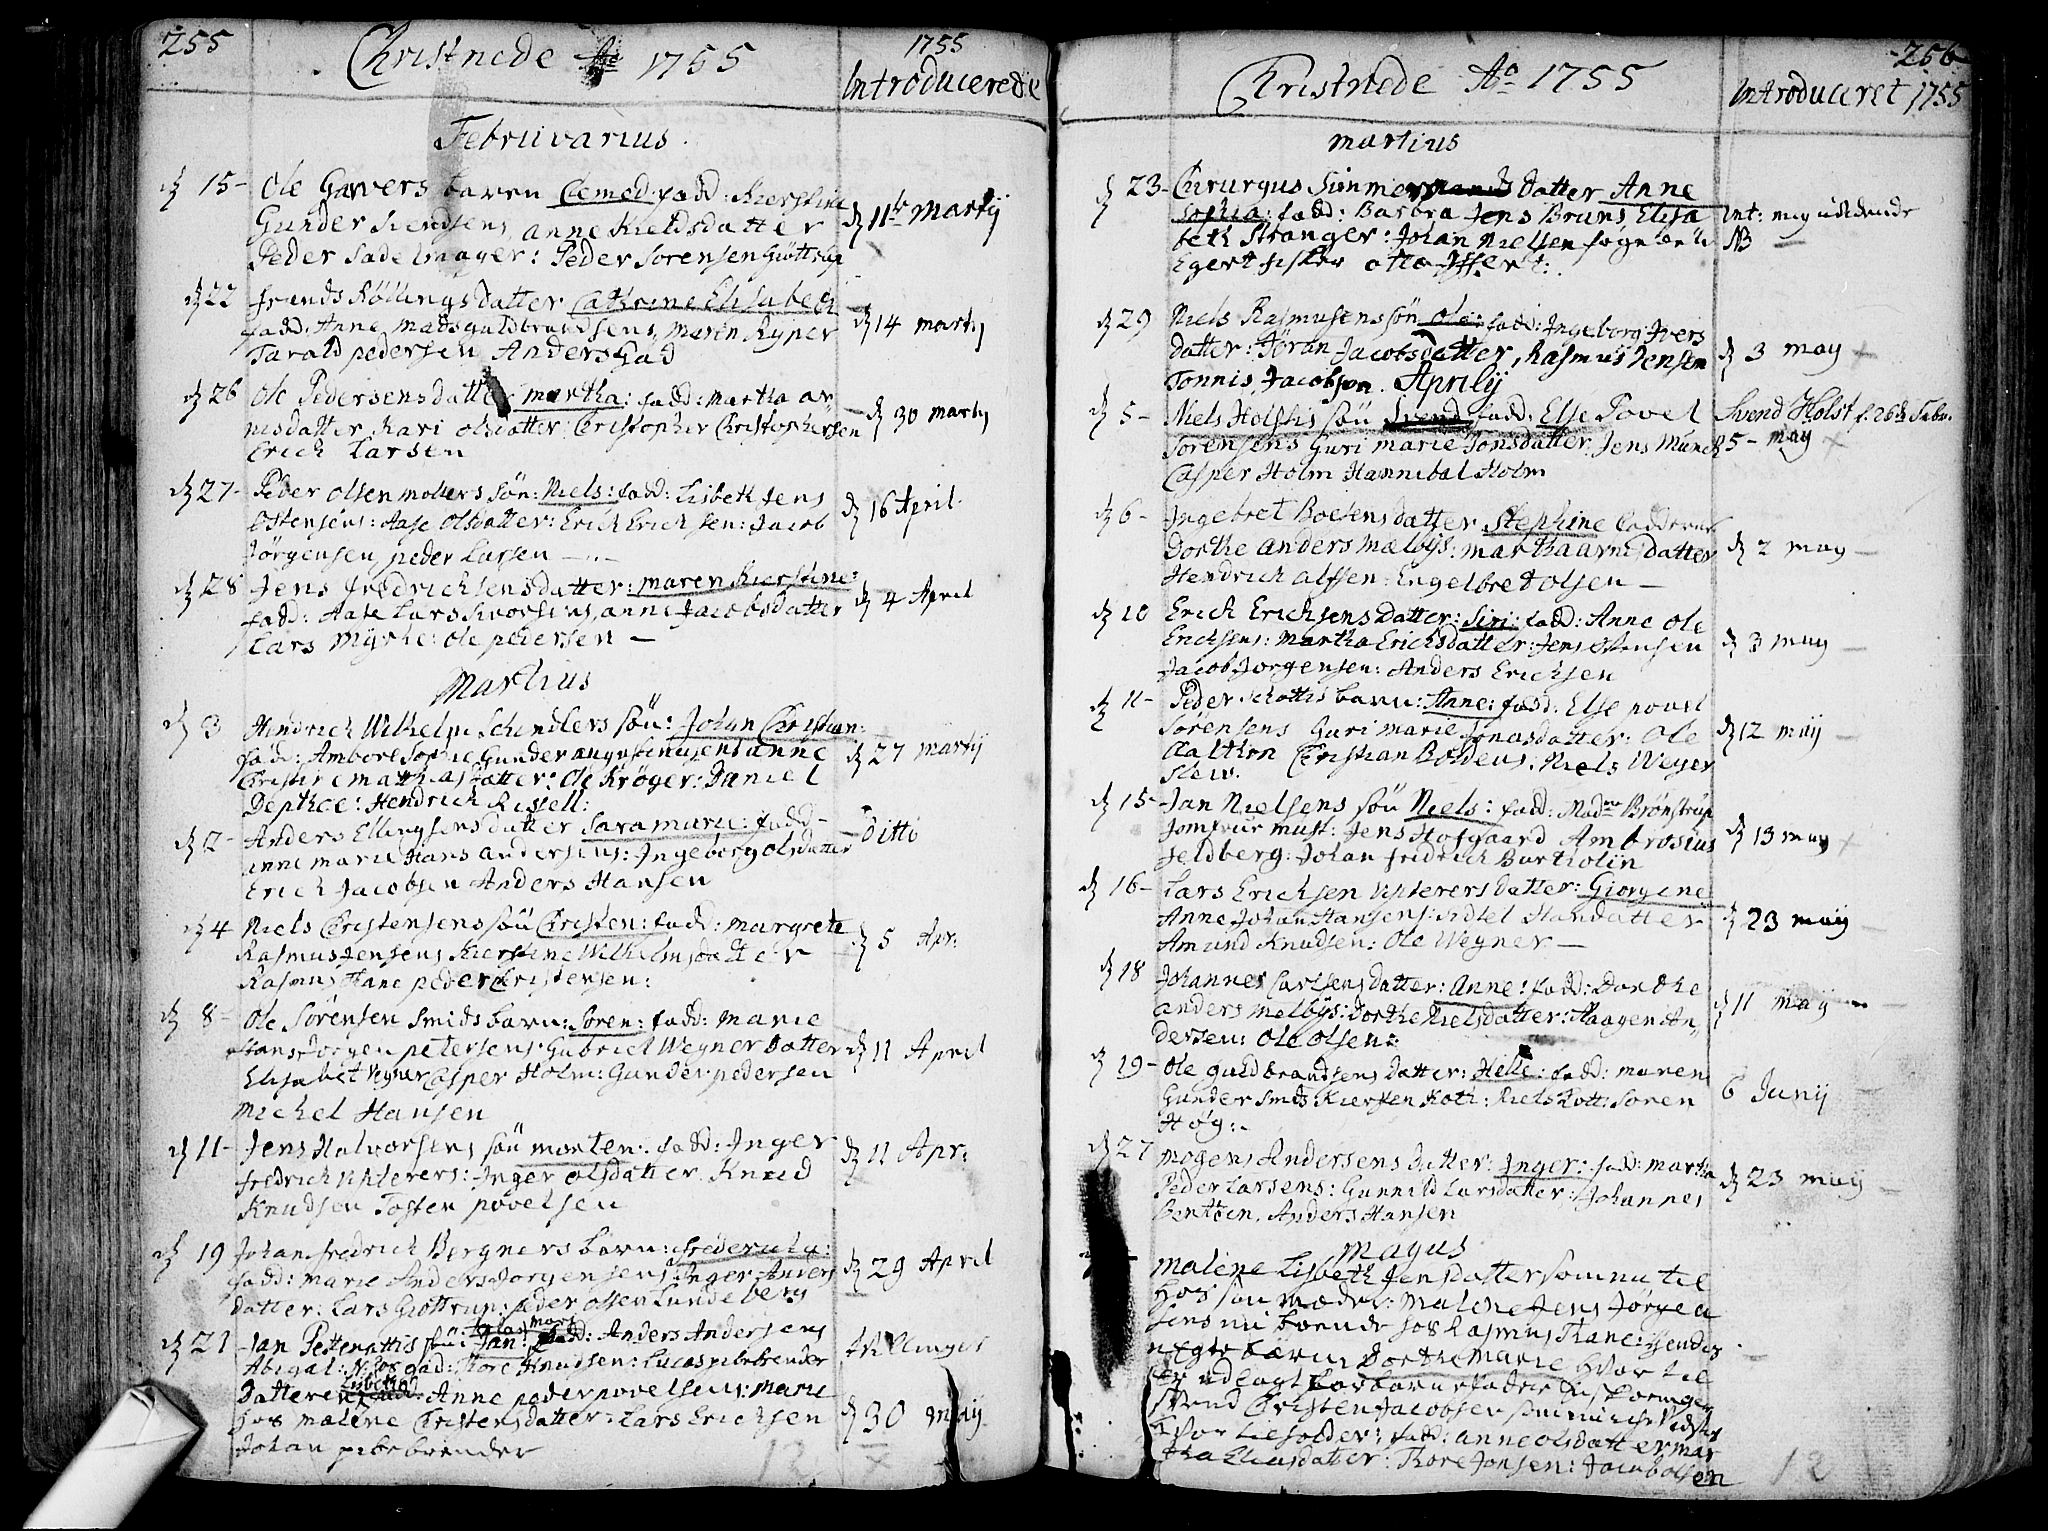 255
Christnede Ao 1755
1755
Introducerede
Februvarius.
d 15- Ole Gavers barn Clemed: fadd: Kierstine
Gunder Svendsens, Anne Kieldsdatter
Peder Sadelmager: Peder Sorensen Giøttrup
d 11te Martij
d 22 frands Køllings datter Cathrine Elisabeth
fadd: Anne Madsguldbrandsens, Maren Ryper
Tarald pedersen Anders Gad
d 14 martij
d 26 Ole Pedersens datter martha: fadd: Martha ar-
nesdatter, Kari olsdatter: Christopher Christophersen
Erich Larsen
d 30 martij
d 27- Peder Olsen molters søn: Niels: fadd: Lisbeth Jens
Ostensens: Aase Olsdatter: Erich Erichsen: Jacob
Jørgensen, peder Larsen
d 16 April.
d 28 Jens fredrichsens datter: maren Kierstine:
fadd: Aase Lars Iversens, anne Jacobsdatter
Lars Myrhe: ole pedersen
d 4 April
Martius
d 3 Hindrich Wilhelm Schindlers søn: Johan Christian:
fadd: Ambore Sophie Gunder augustinusens anne
Christine Matthias datter: Ole Krøger: Daniel
Depthce: Hendrich Rissell:
d 27 martij
d 2- Anders Ellingsens datter Sara marie: fadd-
anne marie Hans andersens: Ingeborg olsdatter
Erich Jacobsen Anders Hansen
Ditto
d 4 Niels Christensens søn Christen: fadd: margrete
Rasmus Jensens, Kierstine Wilhelmsdatter
Rasmus Hane peder Christensen:
d 5 Apr:
d 8- Ole Sørensen Smids barn: Søren: fadd: Marie
Hans Jorgen petersens: Gabriel Wegner Datter
Elisabet Wegner Casper Holm: Gunder pedersen
Michel Hansen
d 11 April
d 11- Jens Halvorsens søn morten: fadd: Inger
fredrich Uhlerers: Inger olsdatter. Knud
Knudsen Tosten povelsen
d 11 Apr:
d 19 Johan fredrich Bergners barn: fredericha:
fadd: marie Anders Jorgensens, Inger Anders
datter: Lars Grottrup: peder olsen Lundeberg
d 29 April
d 21 Jan Pettenattis søn: Jan: fadd: Anders Andersens
Abigal: Niels gad: Thore Knudsen: Lucas pibebrender
Datteren Lisbeth fadd: Anne peder povelsens: marie
hos malene Christensdatter: Lars Erichsen
Johan pibebrender
tvillinger
d 30 maij
12
256
Christnede Ao 1755
Introduceret 1755
martius
d 23- Chirurgus Simmermands Datter Anne
Sophia: fadd: Barbra Jens Bruns, Elisa
beth Stranger: Johan Nielsen
Egert fisker otto Iffert:
Int: mig uvidende
NB
d 29 Niels Rasmusens søn Ole: fadd: Ingeborg Ivers
datter: Jøran Jacobsdatter, Rasmus Jensen
Tonnis Jacobsen. Aprilij
d 3 may
d 5- Niels Holstis søn Svend fadd: Else Povel
Sorensens Guri marie Jonsdatter: Jens Munch
Casper Holm Hannibal Holm
Svend Holst f. 26 Febr.
5- may
d 6- Ingebret Boesens datter Stephine fadderne
Dorthe anders mælbÿs: martha arnesdatter
Hendrich alfsen: Engelbret olsen
d 2 may
d 10 Erich Erichsens datter: Siri: fadd: Anne Ole
Erichsens: Martha Erichsdatter: Jens Ostensen
Jacob Jorgensen: Anders Erichsen
d 3 may
d 11- Peder Schottis barn: Anne: fadd: Else povel
Sørensens Guri marie Jonasdatter: Ole
Aalthon Christian Boldens, Niels Weyer
Slew.
d 12 maij
d 15- Jan Nielsens søn Niels: fadd: Madme Brønstrup
Jomfrue must: Jens Hofgaard Ambrosius
feldberg: Johan fridrich Bartholin
d 13 may
d 16- Lars Erichsen Uhlerers datter: Giorgine
Anne Johan Hansens: Sidsel Hansdatter
Amund Knudsen: Ole Wegner
d 23 maij
d 18 Johannes Carlsens datter: Anne: fadd: Dorthe
anders Melbÿs: Dorthe Nielsdatter: Haagen An-
dersen: Ole olsen:
d 11 may
d 19- Ole guldbrandsens datter: Helle: fadd: maren
Gunder Smids Kiersten Koth: Niels Kott: Soren
Høg:
6 Junij
d 27 mogens Andersens datter: Inger: fadd: martha
Peder Larsens: Gunnild Larsdatter: Johannes
Bentsen, Anders Hansen
d 23 maij
Mayus
Malene Lisbeth Jens datter som nu til
hos sin Moder: Malene Jens Jørgen
sens nu boende hos Rasmus Thane: hendes
uægte barn Dorthe Marie hvor til
er udlagt for barnefader
Svend Christen Jacobsen som
: fadd: anne olsdatter mar
tha Eliasdatter: Thore Jonsen: Jacob olsen
12